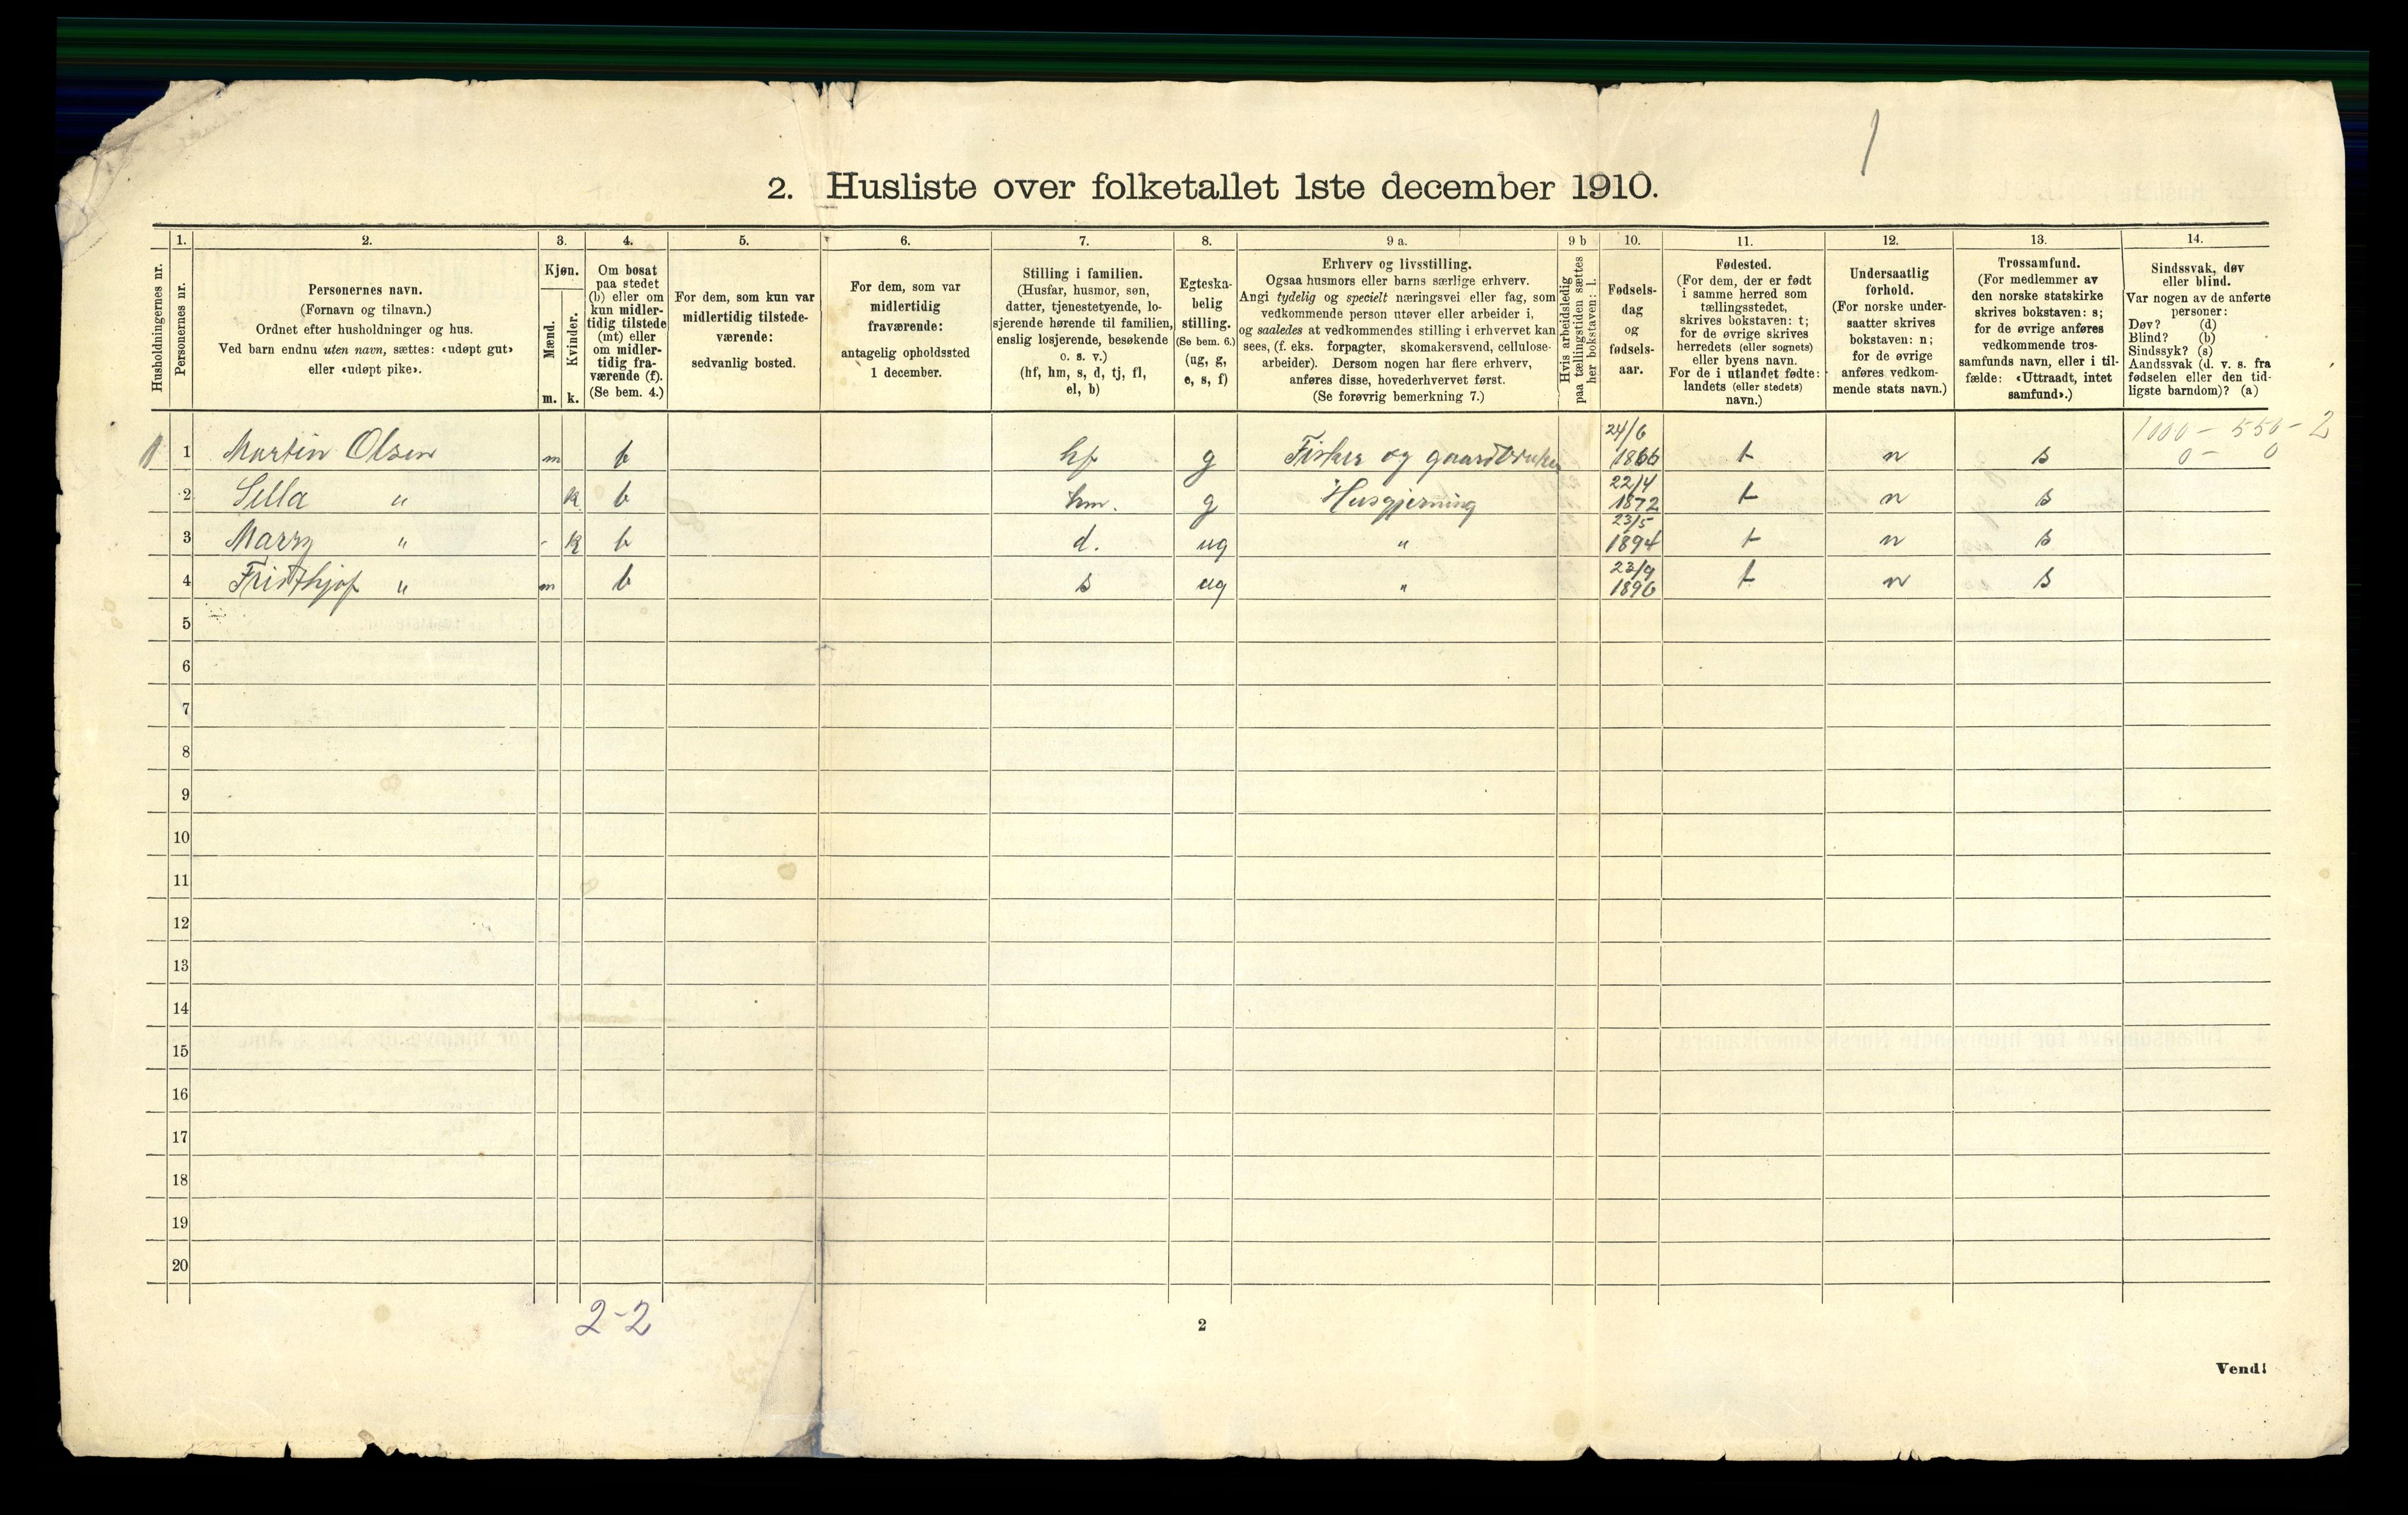 1
2. Husliste over folketallet 1ste december 1910.
Husholdningernes nr.
1.
Personernes nr.
2.
Personernes navn.
(Fornavn og tilnavn.)
Ordnet efter husholdninger og hus.
Ved barn endnu uten navn, sættes: «udøpt gut»
eller «udøpt pike».
3.
Kjøn.
Mænd.
m.
Kvinder.
k.
4.
Om bosat
paa stedet
(b) eller om
kun midler-
tidig tilstede
(mt) eller
om midler-
tidig fra-
værende (f).
(Se bem. 4.)
5.
For dem, som kun var
midlertidig tilstede-
værende:
sedvanlig bosted.
6.
For dem, som var
midlertidig
fraværende:
antagelig opholdssted
1 december.
7.
Stilling i familien.
(Husfar, husmor, søn,
datter, tjenestetyende, lo-
sjerende hørende til familien,
enslig losjerende, besøkende
o. s. v.)
(hf, hm, s, d, tj, fl,
el, b)
8.
Egteska-
belig
stilling.
(Se bem. 6.)
(ug, g,
e, s, f)
9 a.
Erhverv og livsstilling.
Ogsaa husmors eller barns særlige erhverv.
Angi tydelig og specielt næringsvei eller fag, som
vedkommende person utøver eller arbeider i,
og saaledes at vedkommendes stilling i erhvervet kan
sees, (f. eks. forpagter, skomakersvend, cellulose-
arbeider). Dersom nogen har flere erhverv,
anføres disse, hovederhvervet først.
(Se forøvrig bemerkning 7.)
9 b
Hvis arbeidsledig
paa tællingstiden sættes
her bokstaven: l.
10.
Fødsels-
dag
og
fødsels-
aar.
11.
Fødested.
(For dem, der er født
i samme herred som
tællingsstedet,
skrives bokstaven: t;
for de øvrige skrives
herredets (eller sognets)
eller byens navn.
For de i utlandet fødte:
landets (eller stedets)
navn.)
12.
Undersaatlig
forhold.
(For norske under-
saatter skrives
bokstaven: n;
for de øvrige
anføres vedkom-
mende stats navn.)
13.
Trossamfund.
(For medlemmer av
den norske statskirke
skrives bokstaven: s;
for de øvrige anføres
vedkommende tros-
samfunds navn, eller i til-
fælde: «Uttraadt, intet
samfund».)
14.
Sindssvak, døv
eller blind.
Var nogen av de anførte
personer:
Døv? (d)
Blind? (b)
Sindssyk? (s)
Aandssvak (d. v. s. fra
fødselen eller den tid-
ligste barndom)? (a)
1 Martin Olsen m b hf g Fisker og gaardbruker 24/6 1866 t n s 1000 - 550 - 2
0 - 0
2 Sella " k b hm. g Husgjerning 22/4 1872 t n s
3 Marry " - k b d. ug " 23/5 1894 t n s
4 Fridthjof " m b s ug " 23/9 1896 t n s
5
6
7
8
9
10
11
12
13
14
15
16
17
18
19
20
2-2
2
Vend!